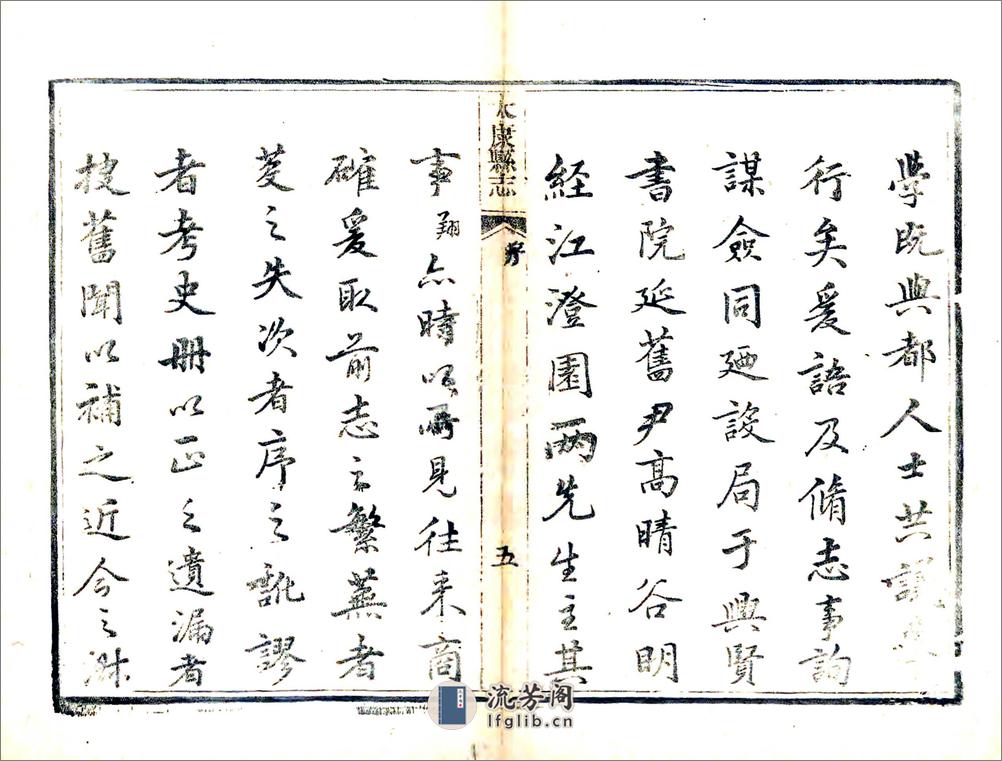 學既興都人士共謀
行矣爰語及脩志事詢
謀僉同廼設局于興賢
書院延舊尹高晴谷明
經江澄園兩先生主其
太康縣志
序
五
事翔亦時以所見往來商
確爰取前志之繁蕪者
芟之失次者序之訛謬
者考史冊以正之遺漏者
搜舊聞以補之近今之
流芳阁
lfglib.cn